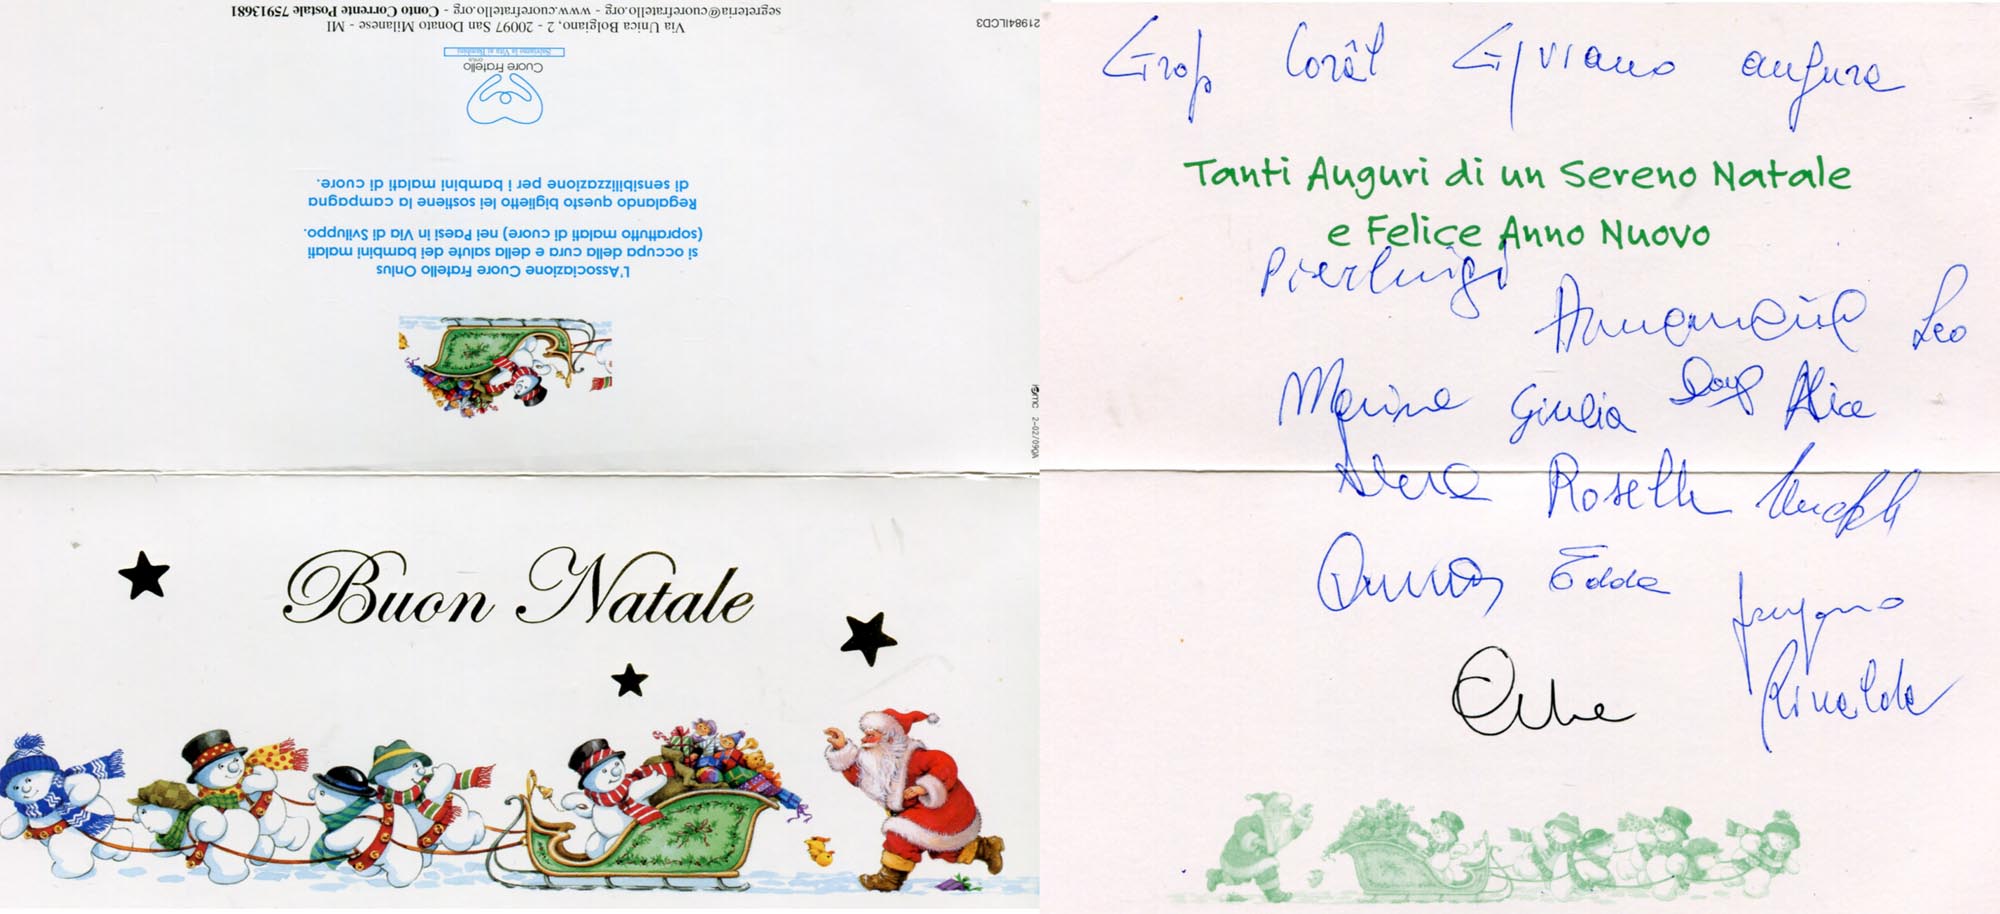 segreteria@cuorefratello.org - www.cuorefratello.org - Conto Corrente Postale 75913681
Via Unica Bolgiano, 2 - 20097 San Donato Milanese - MI
21984ILCD3
Salviamo la Vita ai Bambini
ONLUS
Cuore Fratello
L'Associazione Cuore Fratello Onlus
si occupa della cura e della salute dei bambini malati
(soprattutto malati di cuore) nei Paesi in Via di Sviluppo.
Regalando questo biglietto lei sostiene la campagna
di sensibilizzazione per i bambini malati di cuore.
2-02/09QA
Buon Natale
Grop Corâl Gjviano augura
Tanti Auguri di un Sereno Natale
e Felice Anno Nuovo
Pierluigi
Annamaria Leo
Marina Giulia Alice
Rosella
Edda
Rinaldo